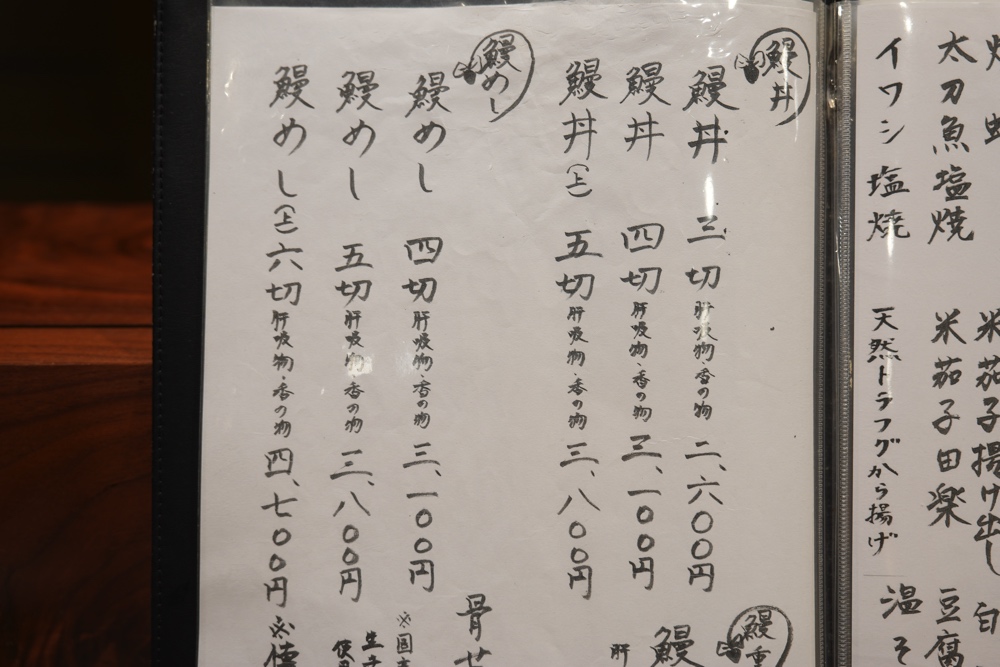 太刀魚塩焼
イワシ塩焼
米茄子揚げ出し
米茄子田楽
天然トラフグから揚げ
豆腐
温そ
鰻丼
鰻丼 三切 肝吸物・香の物 二、六〇〇円
鰻丼 四切 肝吸物・香の物 三、一〇〇円
鰻丼(上) 五切 肝吸物・香の物 三、八〇〇円
鰻めし
鰻めし 四切 肝吸物・香の物 三、一〇〇円
鰻めし 五切 肝吸物・香の物 三、八〇〇円
鰻めし(上) 六切 肝吸物・香の物 四、七〇〇円
鰻重
鰻
肝
骨せ
※国